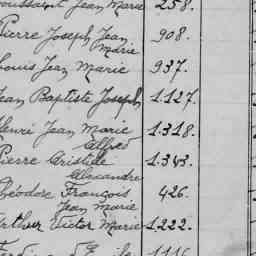 oussaint Jean Marie 258.
Pierre Joseph Jean 908.
Marie
Louis Jean Marie 937.
Jean Baptiste Joseph 1.127.
Henri Jean Marie 1.318.
Alfred
Pierre Aristide 1.343.
Alexandre
Théodore François 426.
Jean Marie
Arthur Victor Marie 1.222.